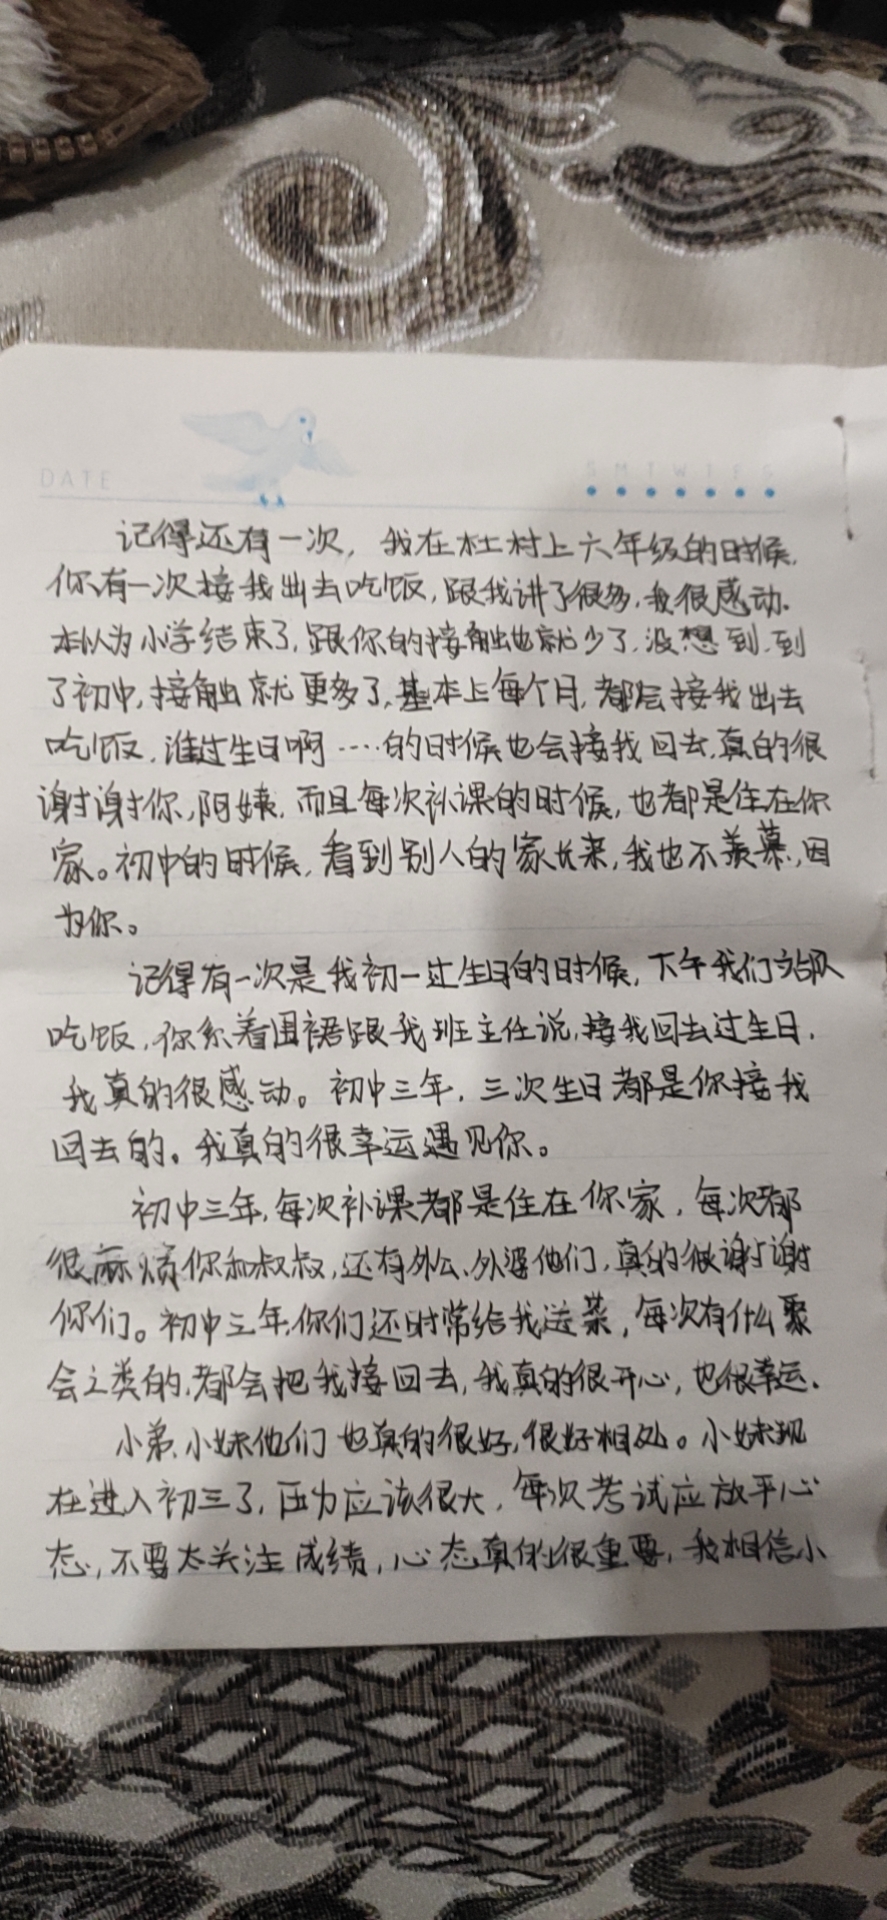 DATE
S M T W T F S
记得还有一次，我在杜村上六年级的时候，
你有一次接我出去吃饭，跟我讲了很多，我很感动。
本以为小学结束了，跟你的接触也就少了，没想到，到
了初中，接触就更多了，基本上每个月，都会接我出去
吃饭，谁过生日啊……的时候也会接我回去，真的很
谢谢你，阿姨，而且每次补课的时候，也都是住在你
家。初中的时候，看到别人的家长来，我也不羡慕，因
为你。
记得有一次是我初一过生日的时候，下午我们站队
吃饭，你系着围裙跟我班主任说，接我回去过生日，
我真的很感动。初中三年，三次生日都是你接我
回去的。我真的很幸运遇见你。
初中三年，每次补课都是住在你家，每次都
很麻烦你和叔叔，还有外公、外婆他们，真的很谢谢
你们。初中三年，你们还时常给我送菜，每次有什么聚
会之类的，都会把我接回去，我真的很开心，也很幸运。
小弟、小妹他们也真的很好，很好相处。小妹现
在进入初三了，压力应该很大，每次考试应放平心
态，不要太关注成绩，心态真的很重要，我相信小